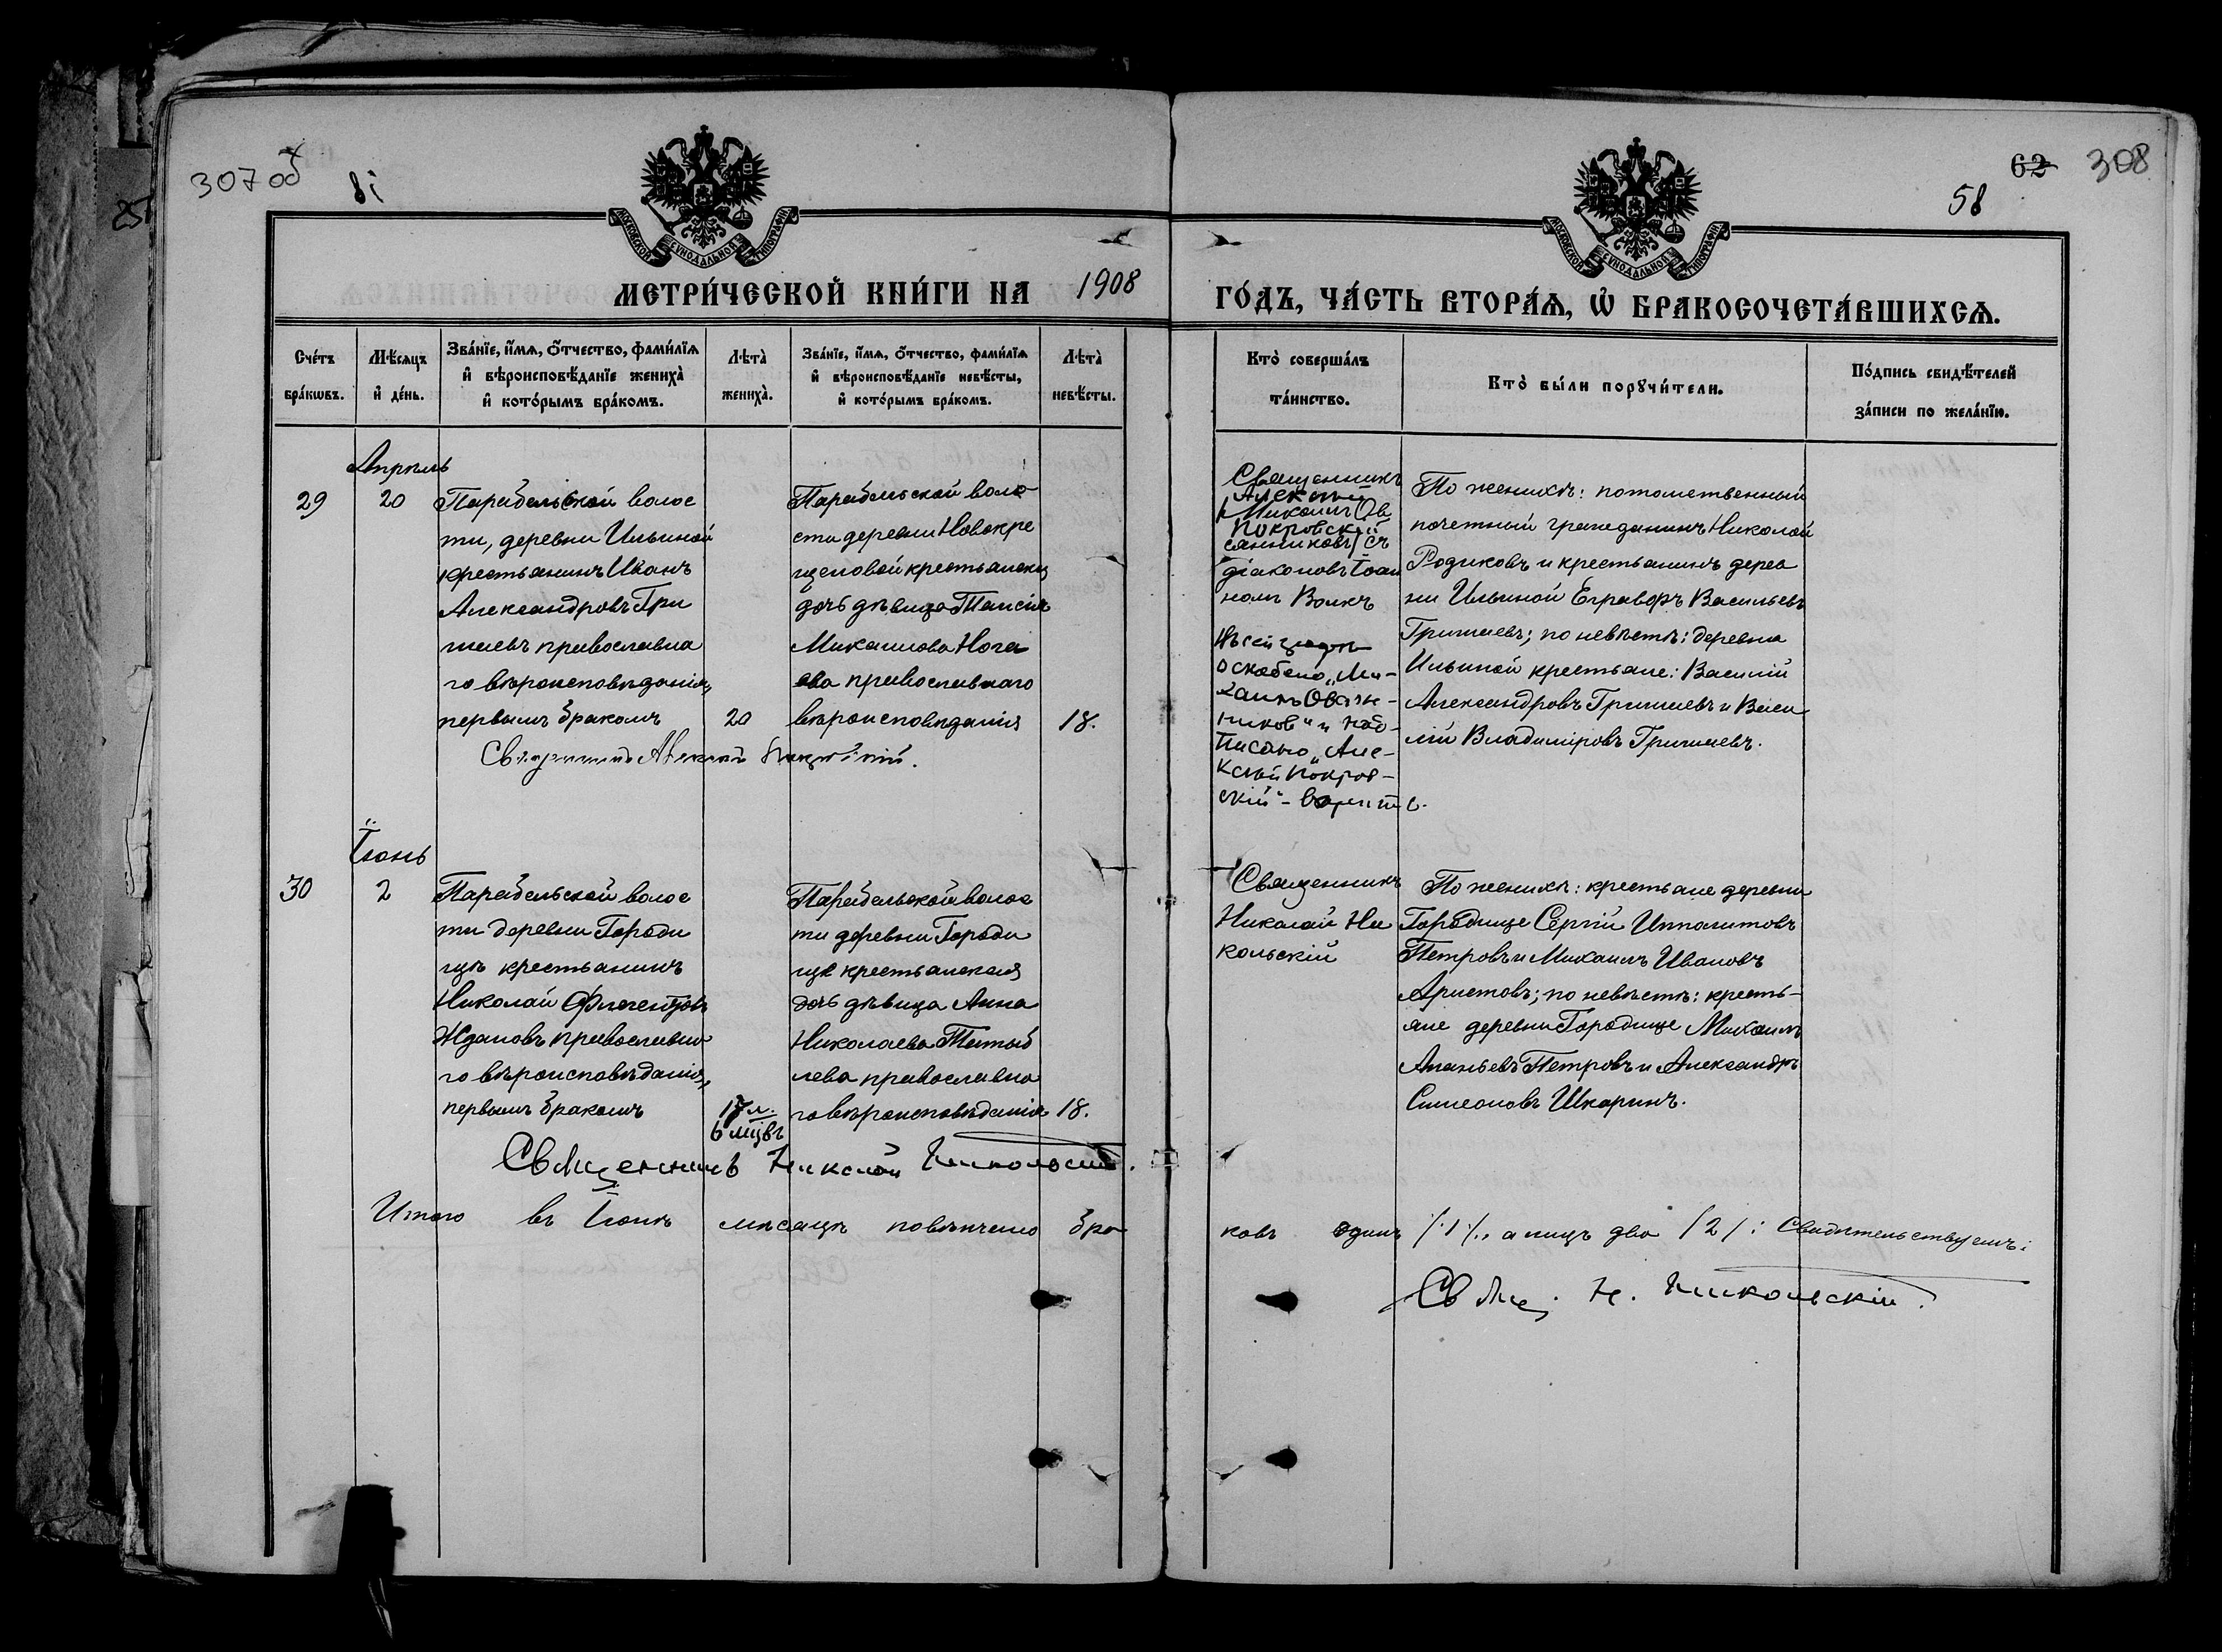 307 об
8i
62 308
58
МОСКОВСКОЙ СУНОДАЛЬНОЙ ТИПОГРАФІИ
МОСКОВСКОЙ СУНОДАЛЬНОЙ ТИПОГРАФІИ
МЕТРИ́ЧЕСКОЙ КНИ́ГИ НА 1908 ГО́ДЪ, ЧА́СТЬ ВТОРА́Ѧ, Ѡ҆ БРАКОСОЧЕТА́ВШИХСѦ.
Сче́тъ бра́кѡвъ.
Мѣ́сяцъ и҆ де́нь.
Зва́нїе, и҆́мѧ, ѻ҆́тчество, фами́лїѧ
и҆ вѣроисповѣ́данїе жениха̀
и҆ кото́рымъ бра́комъ.
Лѣта̀ жениха̀.
Зва́нїе, и҆́мѧ, ѻ҆́тчество, фами́лїѧ
и҆ вѣроисповѣ́данїе невѣ́сты,
и҆ кото́рымъ бра́комъ.
Лѣта̀ невѣ́сты.
Кто̀ соверша́лъ
та́инство.
Кто̀ бы́ли порꙋчи́тели.
По́дпись свидѣ́телей
за́писи по жела́нїю.
Апрѣль
29 20
Парабельской волос
ти, деревни Ильиной
крестьянинъ Иванъ
Александровъ Гри
шаевъ православна
го вѣроисповѣданія,
первымъ бракомъ
20
Парабельской воло
сти деревни Новокре
щеновой крестьянская
дочь дѣвица Таисія
Михаилова Нога
ева православнаго
вѣроисповѣданія
18.
Священникъ Алексѣй Покровскій.
Священникъ
Алексѣй
Михаилъ Ов
Покровскій
сянниковъ съ
діакономъ Іоан
номъ Волкъ
Въ сей графѣ
оскоблено „Ми-
хаилъ Овсян-
никовъ" и надписано „Але-
ксѣй Покров-
скій"- вѣрить.
По женихѣ: потомственный
почетный гражданинъ Николай
Родиковъ и крестьянинъ дерев
ни Ильиной Еграфъ Васильевъ
Гришаевъ; по невѣстѣ: деревни
Ильиной крестьяне: Василій
Александровъ Гришаевъ и Васи
лій Владиміровъ Гришаевъ.
Іюнь
30 2
Парабельской волос
ти деревни Городи
щѣ крестьянинъ
Николай
Ждановъ православна
го вѣроисповѣданія,
первымъ бракомъ
17 л.
6 мцвъ
Парабельской волос
ти деревни Городи
ще крестьянская
дочь дѣвица Анна
Николаева
лева православна
го вѣроисповѣданія
18.
Священникъ
Николай Ни
кольскій
По женихѣ: крестьяне деревни
Городище Сергій Ипполитовъ
Петровъ и Михаилъ Ивановъ
Аристовъ; по невѣстѣ: кресть-
яне деревни Городище Михаилъ
Ананьевъ Петровъ и Александръ
Симеоновъ Шкаринъ.
Священникъ Николай Никольскій.
Итого въ Іюнѣ мѣсяцѣ повѣнчано бра
ковъ одинъ /:1:/, а лицъ два /2/: Свидѣтельствуемъ:
Свящ. Н. Никольскій.